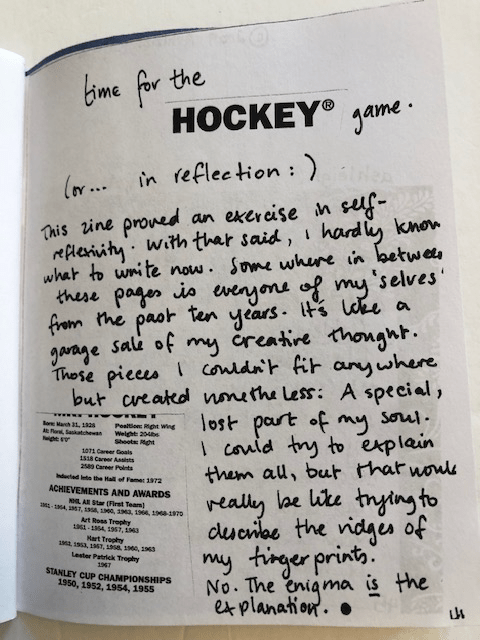 time for the
HOCKEY® game.
(or... in reflection:)
This zine proved an exercise in self-
reflexivity. With that said, I hardly know
what to write now. Some where in between
these pages is everyone of my 'selves'
from the past ten years. It's like a
garage sale of my creative thought.
Those pieces I couldn't fit anywhere
but created nonetheless: A special,
lost part of my soul.
I could try to explain
them all, but that would
really be like trying to
describe the ridges of
my fingerprints.
No. The enigma is the
explanation.
HOCKEY
Born: March 31, 1928 Position: Right Wing
At: Floral, Saskatchewan Weight: 204lbs
Height: 6'0" Shoots: Right
1071 Career Goals
1518 Career Assists
2589 Career Points
Inducted into the Hall of Fame: 1972
ACHIEVEMENTS AND AWARDS
NHL All Star (First Team)
1951 - 1954, 1957, 1958, 1960, 1963, 1966, 1968-1970
Art Ross Trophy
1951 - 1954, 1957, 1963
Hart Trophy
1952, 1953, 1957, 1958, 1960, 1963
Lester Patrick Trophy
1967
STANLEY CUP CHAMPIONSHIPS
1950, 1952, 1954, 1955